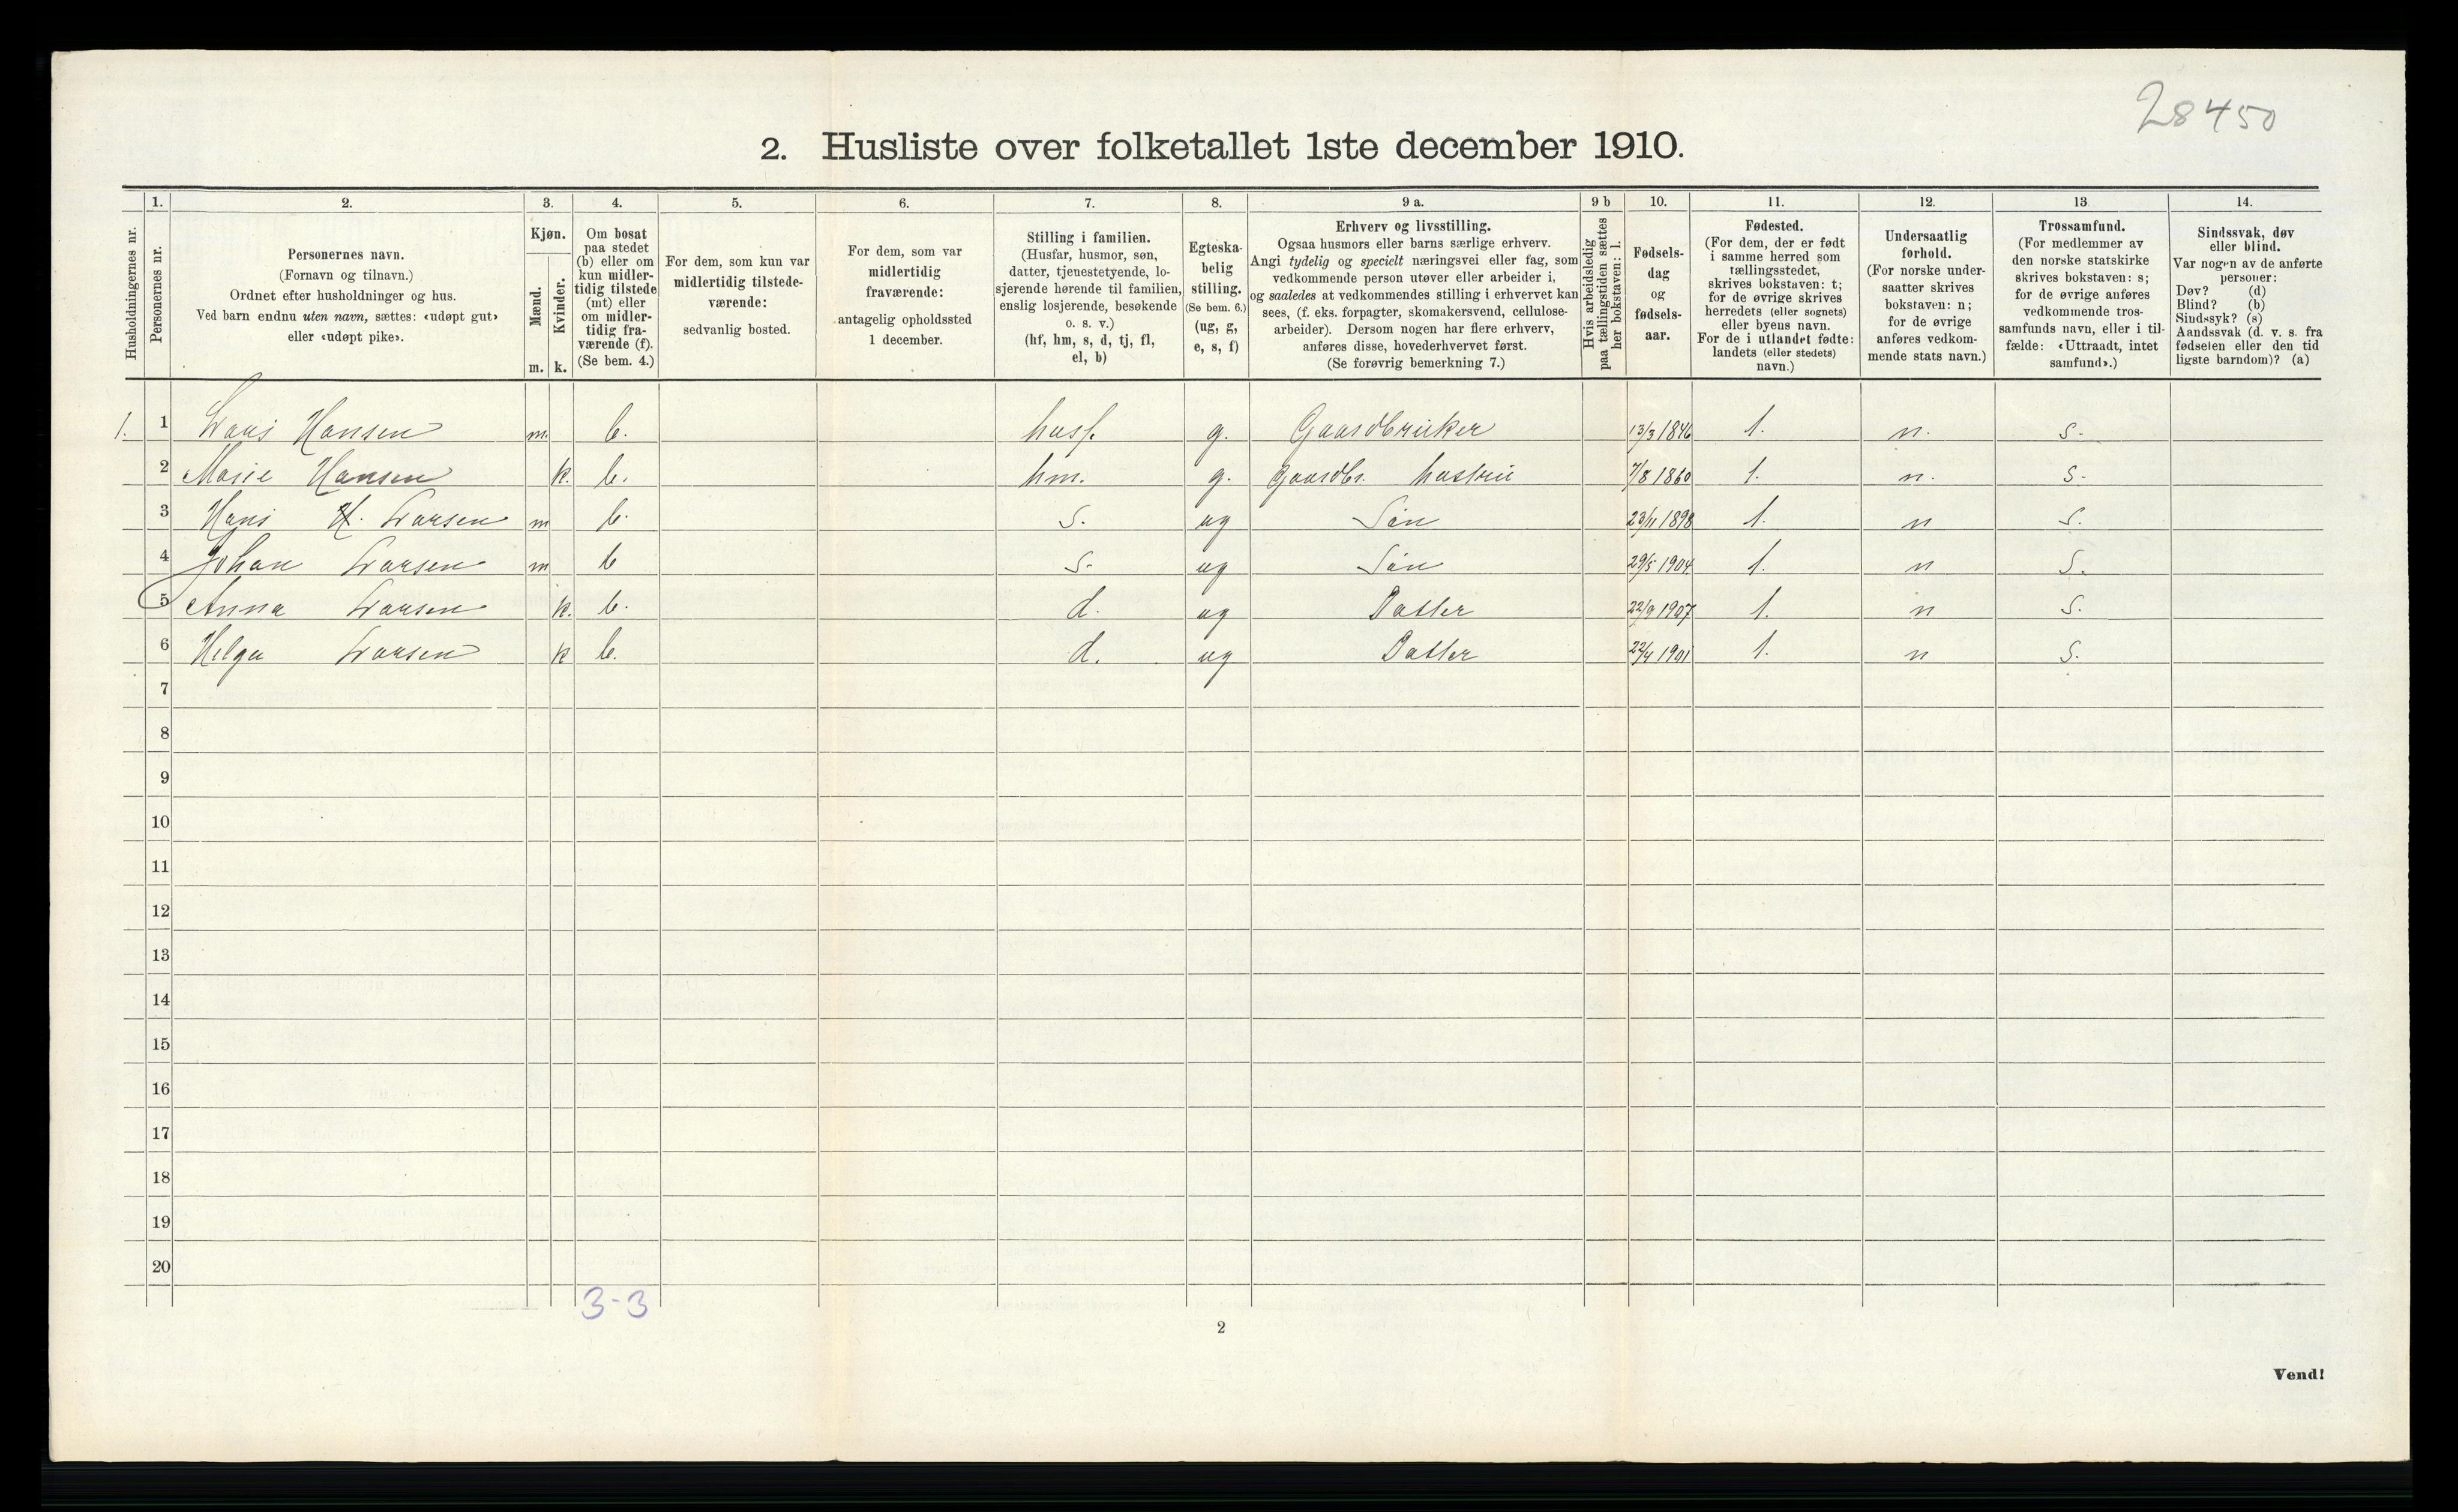 28450
2. Husliste over folketallet 1ste december 1910.
Husholdningernes nr.
1. Personernes nr.
2. Personernes navn.
(Fornavn og tilnavn.)
Ordnet efter husholdninger og hus.
Ved barn endnu uten navn, sættes: «udøpt gut»
eller «udøpt pike».
3. Kjøn.
Mænd. m.
Kvinder. k.
4. Om bosat
paa stedet
(b) eller om
kun midler-
tidig tilstede
(mt) eller
om midler-
tidig fra-
værende (f).
(Se bem. 4.)
5. For dem, som kun var
midlertidig tilstede-
værende:
sedvanlig bosted.
6. For dem, som var
midlertidig
fraværende:
antagelig opholdssted
1 december.
7. Stilling i familien.
(Husfar, husmor, søn,
datter, tjenestetyende, lo-
sjerende hørende til familien,
enslig losjerende, besøkende
o. s. v.)
(hf, hm, s, d, tj, fl,
el, b)
8. Egteska-
belig
stilling.
(Se bem. 6.)
(ug, g,
e, s, f)
9 a. Erhverv og livsstilling.
Ogsaa husmors eller barns særlige erhverv.
Angi tydelig og specielt næringsvei eller fag, som
vedkommende person utøver eller arbeider i,
og saaledes at vedkommendes stilling i erhvervet kan
sees, (f. eks. forpagter, skomakersvend, cellulose-
arbeider). Dersom nogen har flere erhverv,
anføres disse, hovederhvervet først.
(Se forøvrig bemerkning 7.)
9 b Hvis arbeidsledig
paa tællingstiden sættes
her bokstaven: l.
10. Fødsels-
dag
og
fødsels-
aar.
11. Fødested.
(For dem, der er født
i samme herred som
tællingsstedet,
skrives bokstaven: t;
for de øvrige skrives
herredets (eller sognets)
eller byens navn.
For de i utlandet fødte:
landets (eller stedets)
navn.)
12. Undersaatlig
forhold.
(For norske under-
saatter skrives
bokstaven: n;
for de øvrige
anføres vedkom-
mende stats navn.)
13. Trossamfund.
(For medlemmer av
den norske statskirke
skrives bokstaven: s;
for de øvrige anføres
vedkommende tros-
samfunds navn, eller i til-
fælde: «Uttraadt, intet
samfund».)
14. Sindssvak, døv
eller blind.
Var nogen av de anførte
personer:
Døv? (d)
Blind? (b)
Sindssyk? (s)
Aandssvak (d. v. s. fra
fødselen eller den tid
ligste barndom)? (a)
1. 1 Lars Hansen m. b. husf. g. Gaardbruker 13/3 1846 t. n. s.
2 Marie Hansen k. b. hm. g. Gaardbr. hustru 7/8 1860 t. n. s.
3 Hans H. Larsen m b. s. ug Søn 1898 t. n s.
4 Johan Larsen m b s. ug Søn 29/5 1904 t. n s.
5 Anna Larsen k. b. d. ug Datter 22/9 1907 t. n s.
6 Helga Larsen k b. d. ug Datter 22/4 1901 t. n s.
7
8
9
10
11
12
13
14
15
16
17
18
19
20
3-3
2
Vend!